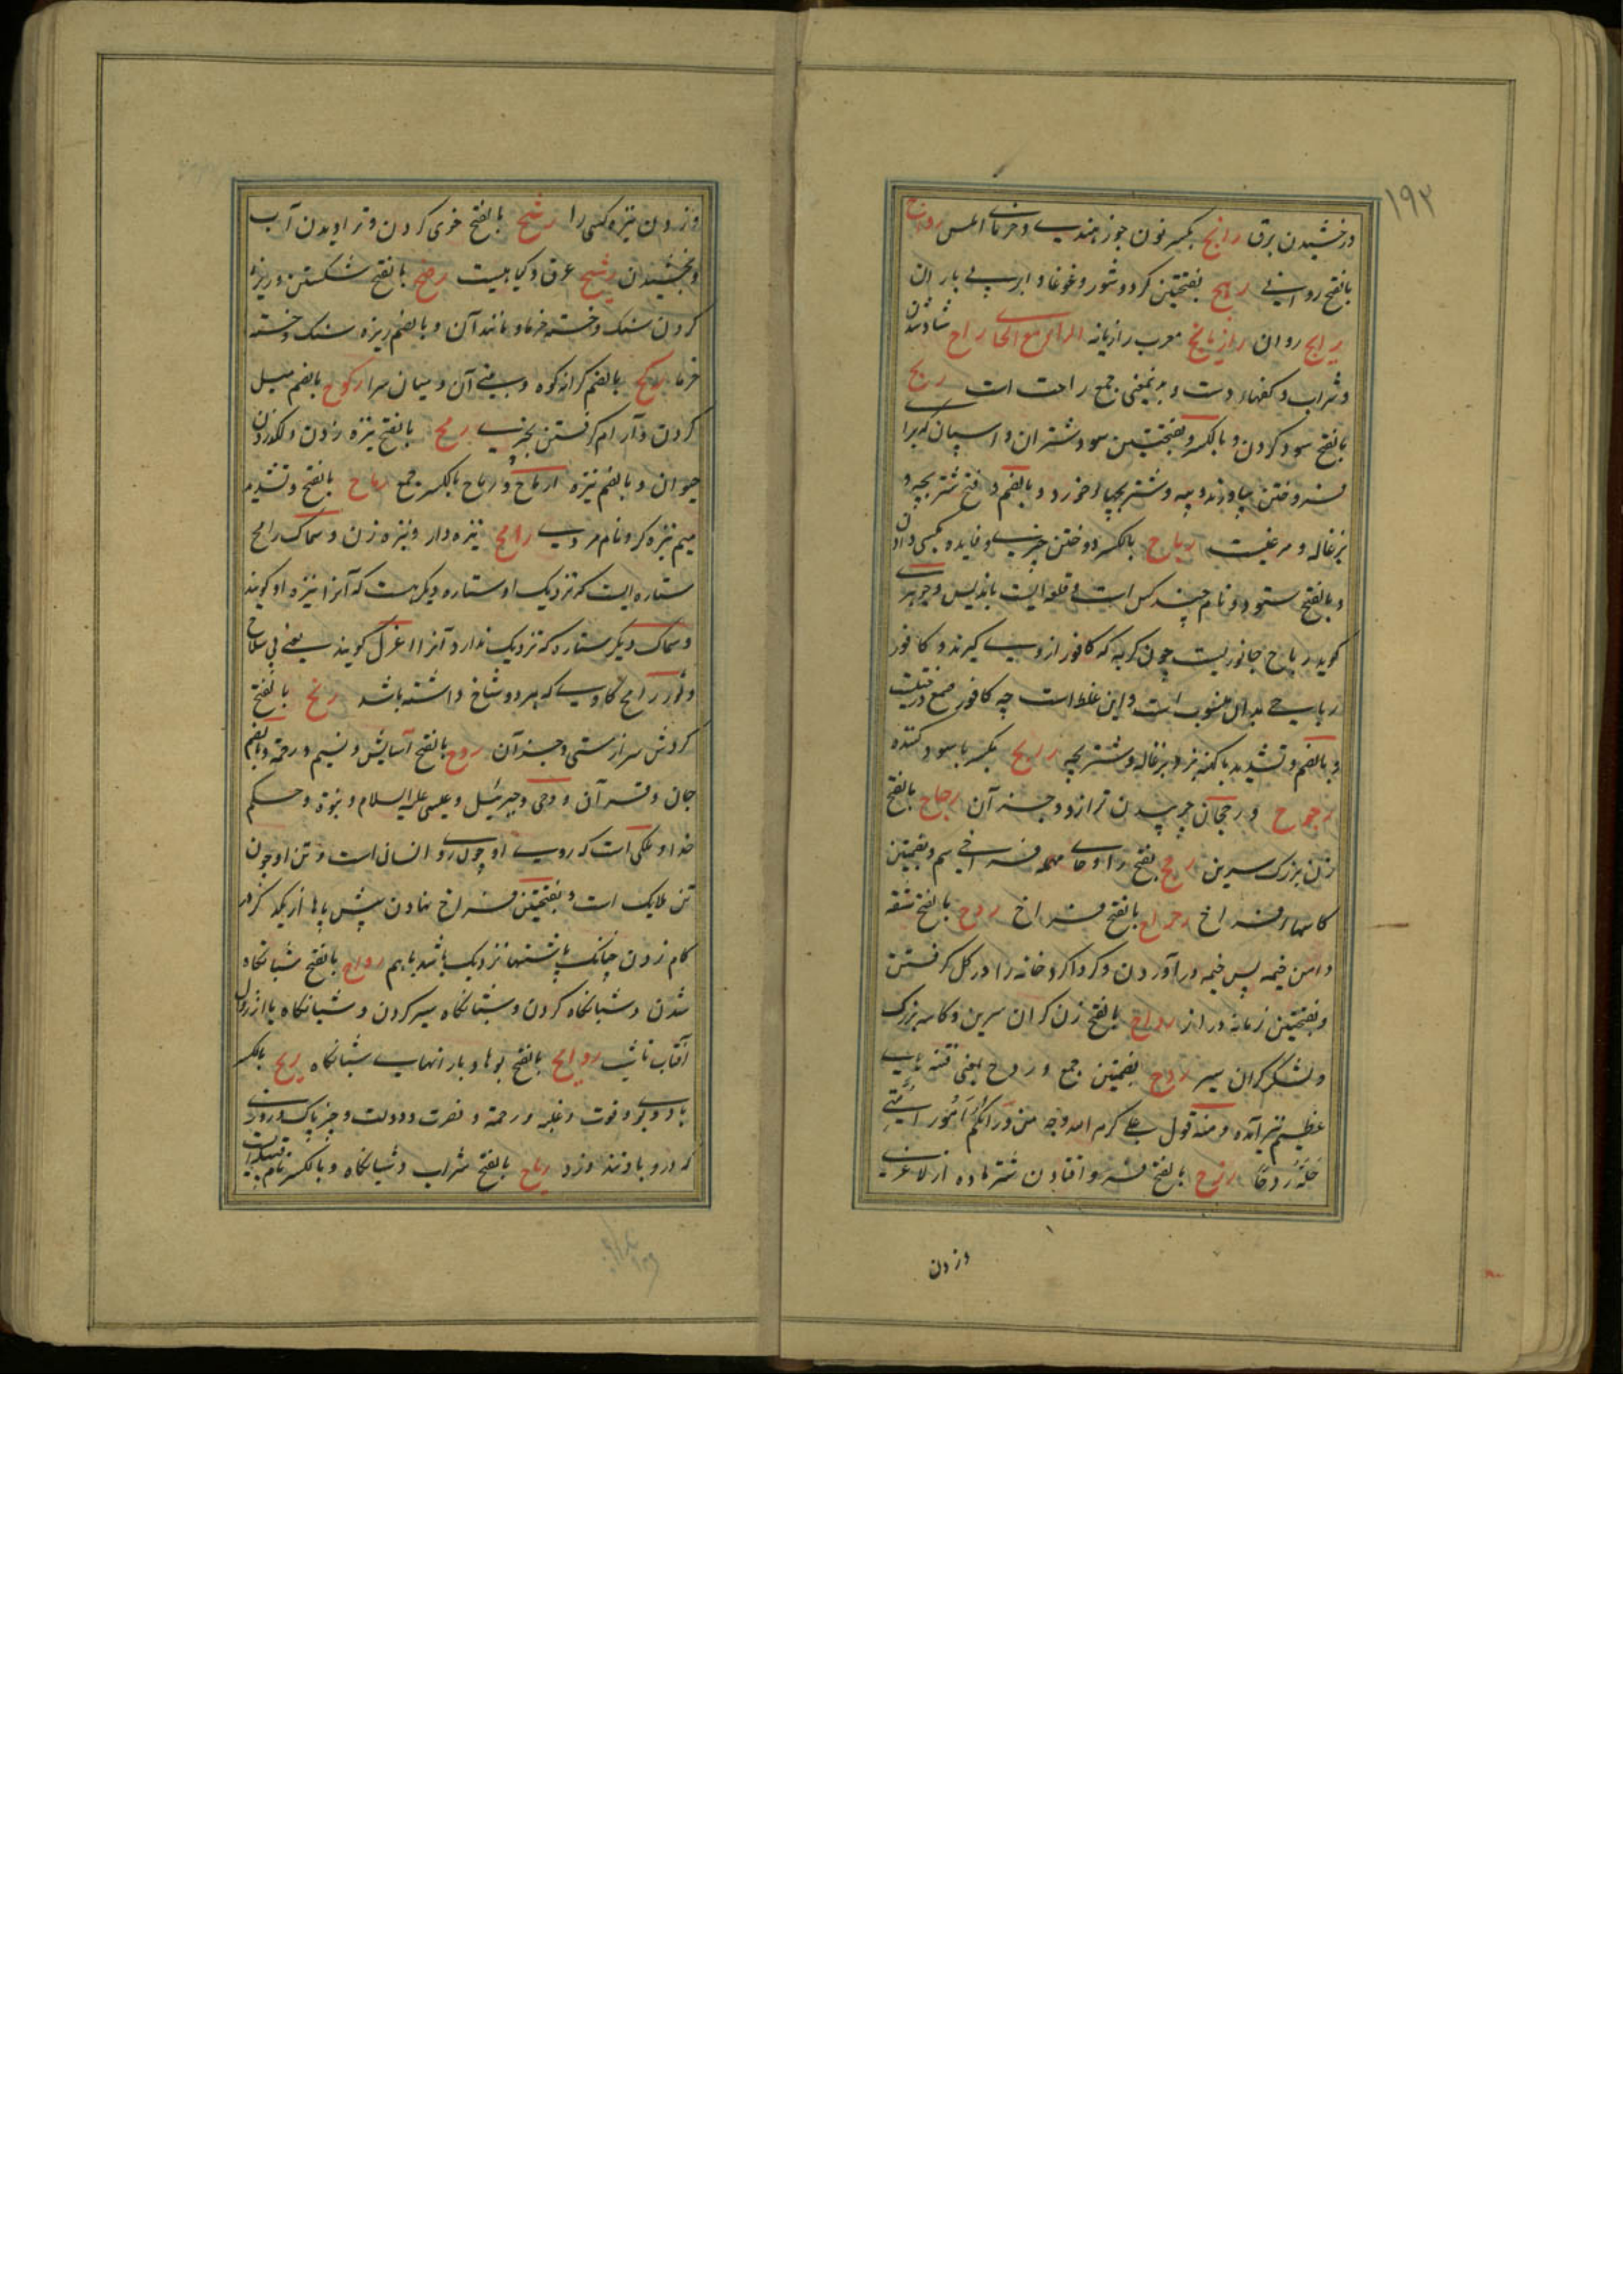 ۱۹۲
درخشیدن برق رانج بکسر نون جوز هندی و خرمای املس رواج
بالفتح روایی رهج بفتحتین کرد و شور و غوغا و ابر بی باران
رایج روان رازیانج معرب رازیانه الراء مع الحاء راح شاد شدن
و شراب و کفهاء دست و بمعنی جمع راحت است ربح
بالفتح سود کردن و بالکسر و بفتحتین سود و شتران و اسپان که برای
فروختن بیاورند و پیه و شتر بچهاء خرد و بالضم و فتح شتر بچه و
بزغاله و مرغیست رباح بالکسر دوختن چیزی و فایده بکسی دادن
و بالفتح ستور و نام چند کس است و قلعه ایست باندلس و جوهری
کوید رباح جانوریست چون کربه که کافور از وی گیرند و کافور
رباحی بدان منسوب است و این غلط است چه کافور صمغ درختیست
و بالضم و تشدید با کپی نر و بزغاله و شتر بچه ربیح بکسر با سود کننده
رجوح و رجحان چربیدن ترازو و جز آن رجاح بالفتح
زن بزرک سرین رحح بفتح را و حای مهمله فراخی سم و بضمتین
کاسهاء فراخ رحراح بالفتح فراخ ردح بالفتح شقه
دامن خیمه پس خیمه در آوردن و کرداکرد خانه را در کل کرفتن
و بفتحتین زمانه دراز رداح بالفتح زن کران سرین و کاسه بزرک
و لشکر کران سیر ردح بضمتین جمع و ردح بمعنی فتنه های
عظیم نیز آمده و منه قول علی کرم الله وجهه من ورائکم امور
ردحا رزح بالفتح و افتادن شتر ماده از لاغری
و زدن
و زدن نیزه کسی را رشح بالفتح خوی کردن و تراویدن آب
رشیح عرق و کیاهیست رضح بالفتح شکستن و ریزه
کردن سنک و خسته خرما و مانند آن و بالضم ریزه سنک و خسته
خرما رکح بالضم کرانه کوه و بینی آن و میان سرا رکوح بالضم میل
کردن و آرام کرفتن بچیزی رمح بالفتح نیزه زدن و لکد زدن
حیوان و بالضم نیزه ارماح و رماح بالکسر جمع رماح بالفتح و تشدید
میم نیزه کر و نام مردی رامح نیزه دار و نیزه زن و سماک رامح
ستاره ایست که نزدیک او ستاره دیکر هست که آنرا نیزه او کویند
و سماک دیکر ستاره که نزدیک ندارد آنرا اعزل کویند یعنی بی سلاح
و ثور رامح کاوی که هر دو شاخ داشته باشد رنح بالفتح
کردش سر از مستی و جز آن روح بالفتح آسایش و نسیم و رحمة و بالضم
جان و قرآن و وحی و جبرئیل و عیسی علیه السلام و نبوة و حکم
خدا و ملکی است که روی او چون روی انسان است و تن او چون
تن ملایک است و بفتحتین فراخ نهادن پیش پاها از یکدیکر در
کام زدن چنانک پاشنها نزدیک باشد با هم رواح بالفتح شبانکاه
شدن و شبانکاه کردن و شبانکاه سیر کردن و شبانکاه یا از زوال
آفتاب تا شب روایح بالفتح بوها و بارانهای شبانکاه ریح بالکسر
باد و بوی و قوت و غلبه و رحمة و نصرت و دولت و چیز پاک و روزی
که درو باد تند وزد ریاح بالفتح شراب و شبانکاه و بالکسر نام قبیله است